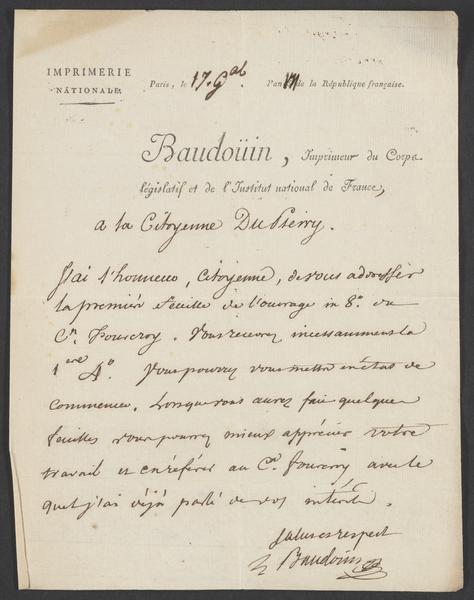 IMPRIMERIE
NATIONALE.
Paris, le 17. Gal l'an VII de la République française.
Baudoüin, Imprimeur du Corps
législatif et de l'Institut national de France,
a la Citoyenne DuPierry.
J'ai l'honneur, Citoyenne, de vous addresser
la premiere feuille de l'ouvrage in 8.° du
Cn. Fourcroy. Vous recevrez incessamment la
1ere 4°. Vous pourrez vous mettre en état de
commencer. Lorsque vous aurez fait quelques
feuilles vous pourrez mieux apprécier votre
travail et en référer au Cn. fourcroy avec le
quel j'ai déjà parlé de vos intérêts.
Salut et respect
Baudouin